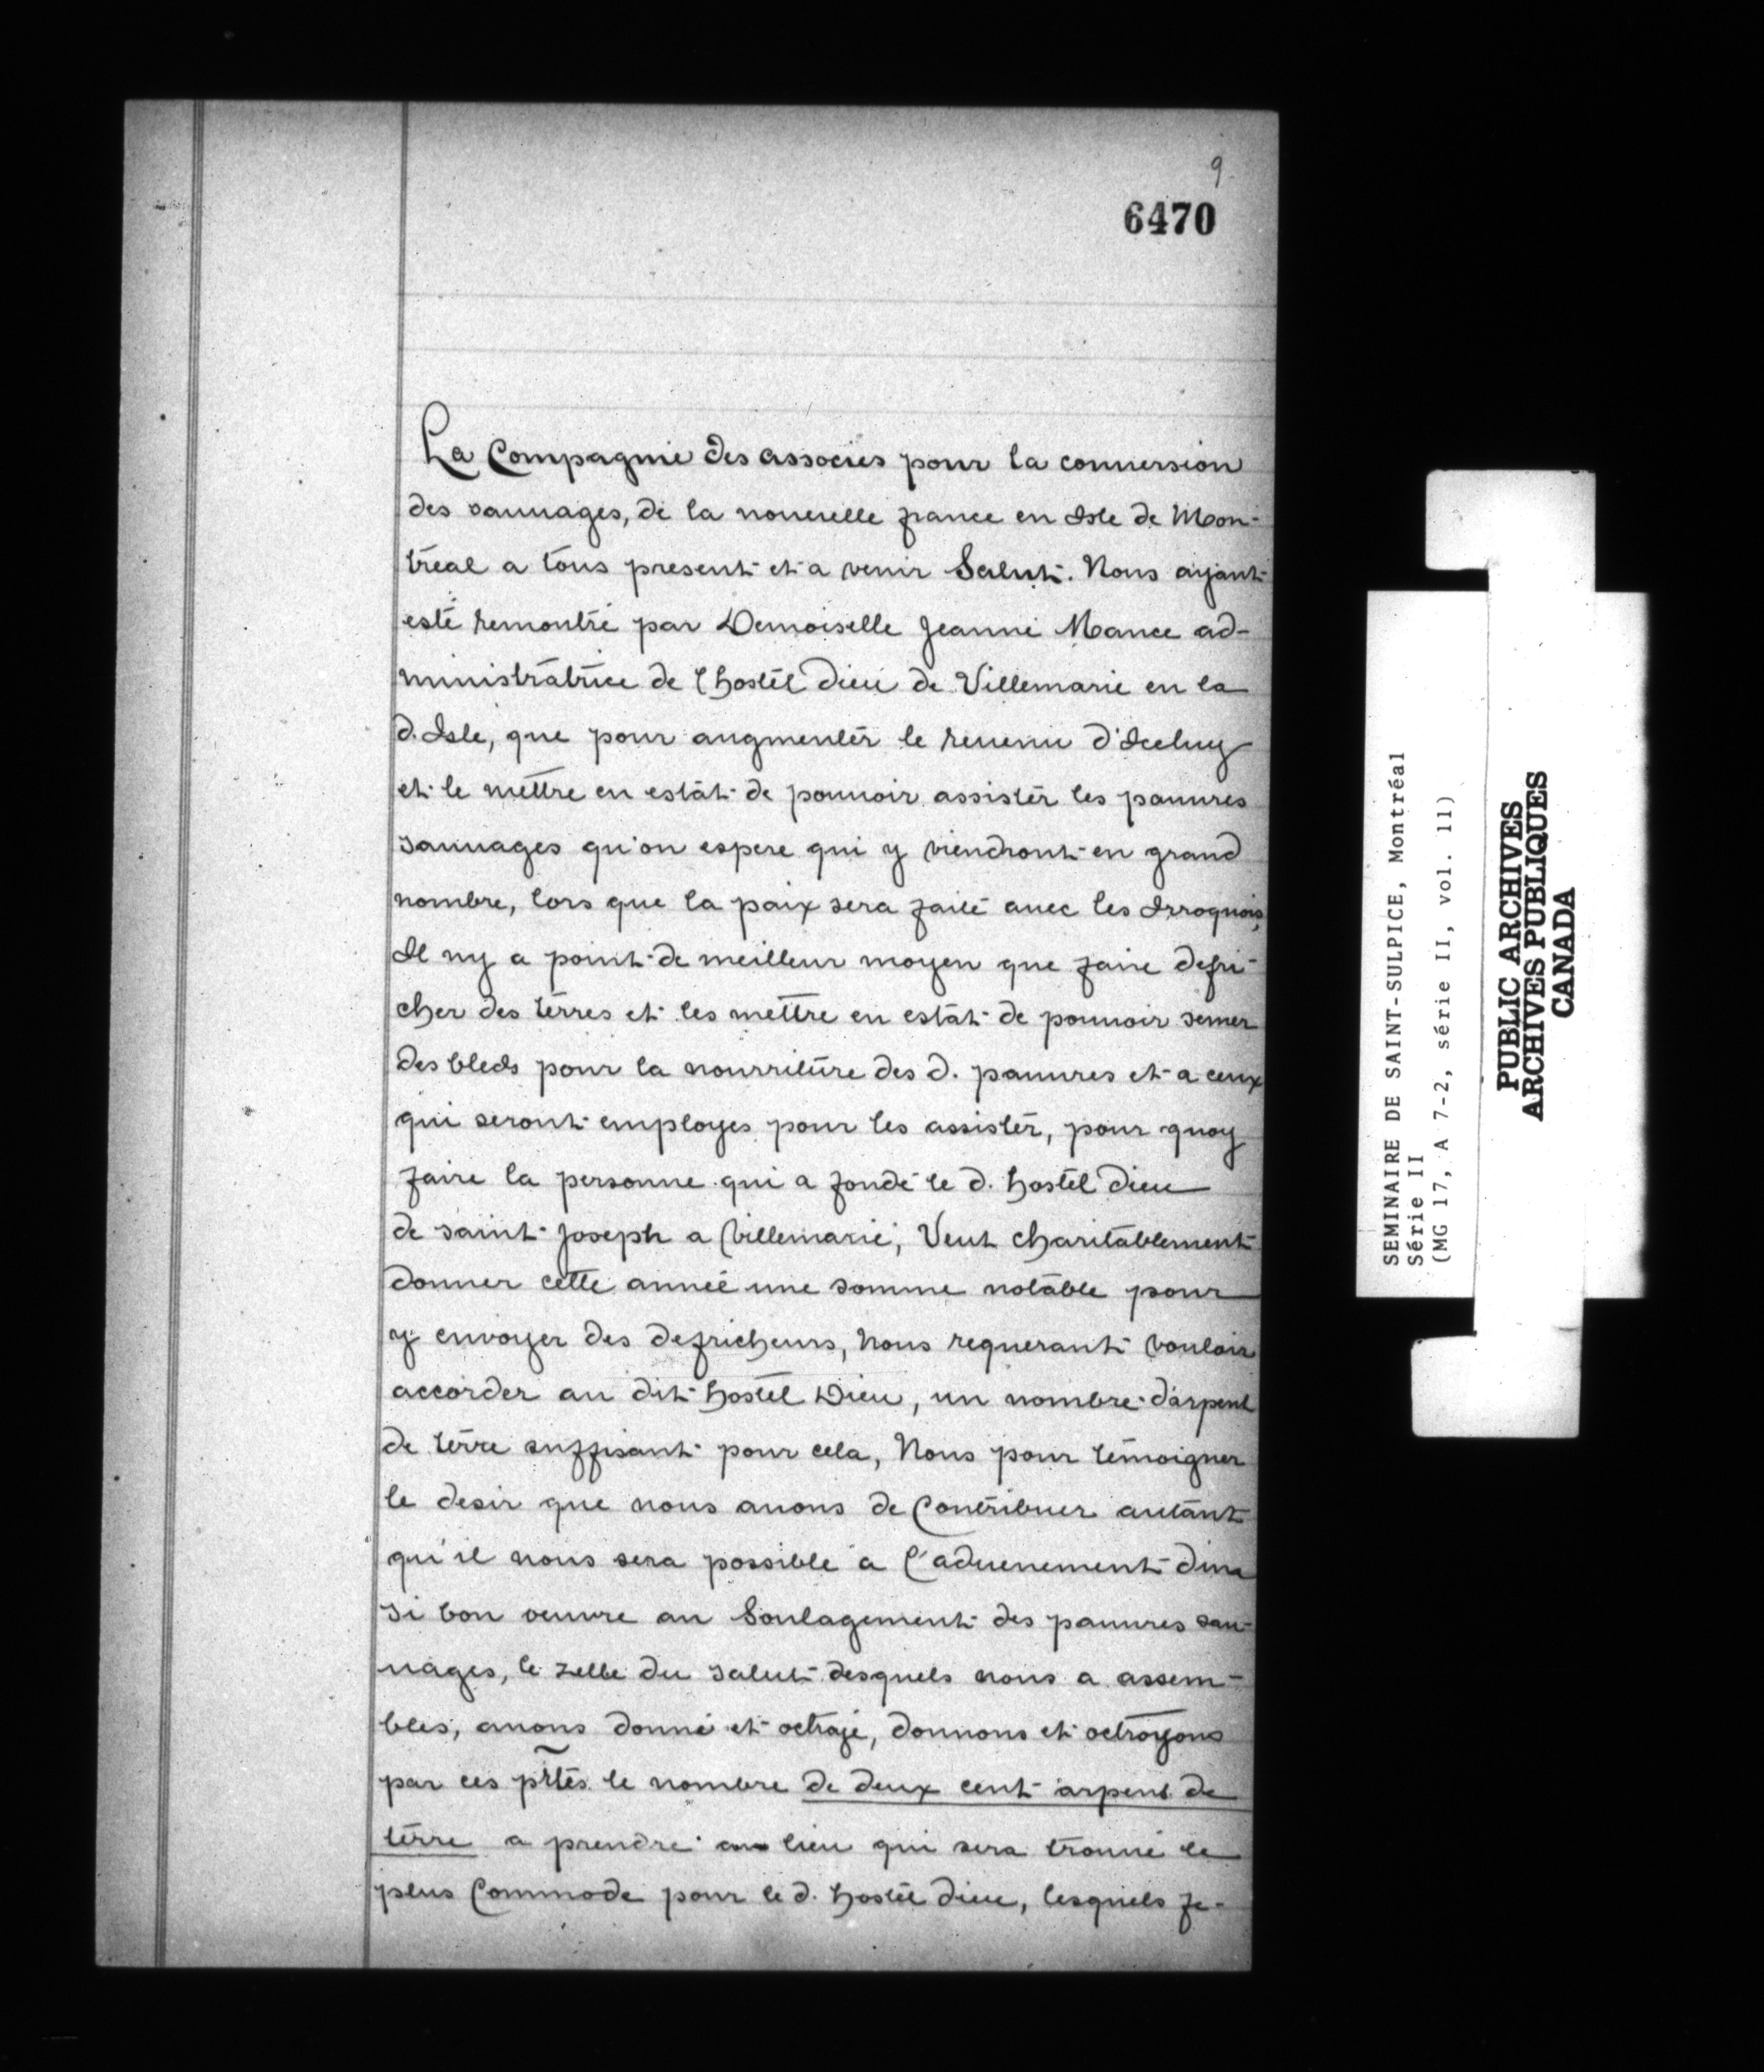 9
6470
La Compagnie des associes pour la conuersion
des sauuages, de la nouuelle france en Isle de Mon-
treal a tous present et a venir Salut. Nous ayant
esté remontré par Demoiselle Jeanne Mance ad-
ministratrice de l'hostel dieu de Villemarie en la
d. Isle, que pour augmenter le reuenu d'Iceluy
et le mettre en estat de pouuoir assister les pauures
sauuages qu'on espere qui y viendront en grand
nombre, lors que la paix sera faite auec les Irroquois,
Il ny a point de meilleur moyen que faire defri-
cher des terres et les mettre en estat de pouuoir semer
des bleds pour la nourriture des d. pauures et a ceux
qui seront employes pour les assister, pour quoy
faire la personne qui a fondé le d. hostel dieu
de saint Joseph a Villemarie, Veut charitablement
donner cette année une somme notable pour
y envoyer des defricheurs, nous requerant vouloir
accorder au dit hostel Dieu, un nombre d'arpent
de terre suffisant pour cela, Nous pour temoigner
le desir que nous auons de Contribuer autant
qu'il nous sera possible a l'aduenement dune
si bon oeuure au Soulagement des pauures sau-
uages, le zelle du salut desquels nous a assem-
bles, auons donné et octroje, donnons et octroyons
par ces prtes le nombre de deux cent arpent de
terre a prendre au lieu qui sera trouué le
plus Commode pour le d. hostel dieu, lesquels fe-
SEMINAIRE DE SAINT-SULPICE, Montréal
Série II
(MG 17, A 7-2, série II, vol. 11)
PUBLIC ARCHIVES
ARCHIVES PUBLIQUES
CANADA